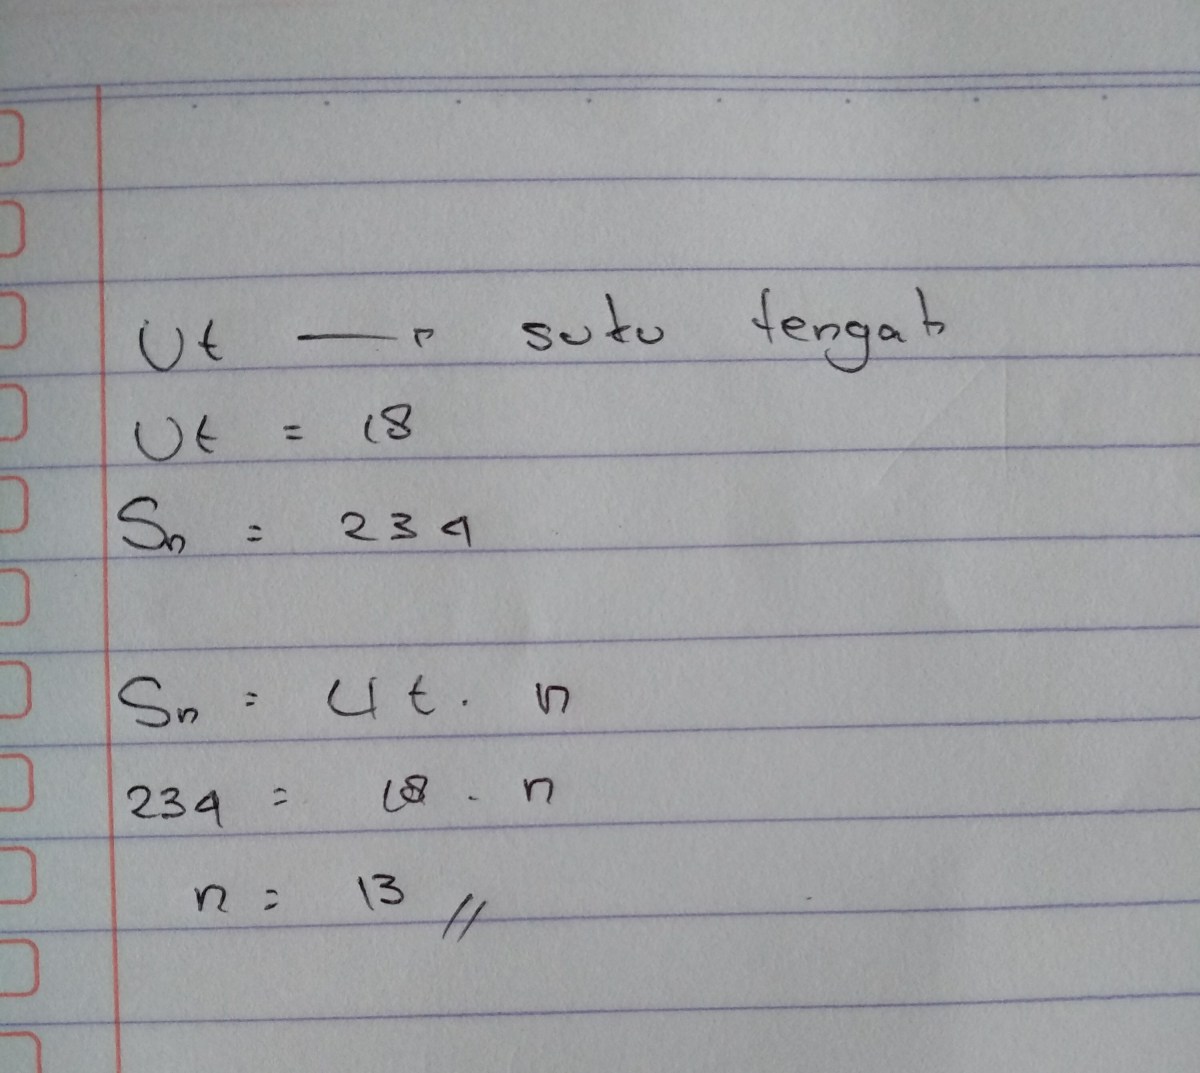 Ut → suku tengah
Ut = 18
Sn = 234
Sn = Ut . n
234 = 18 . n
n = 13 //